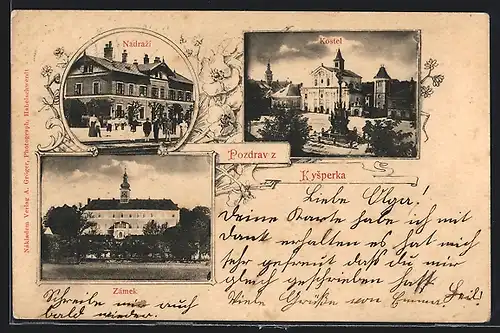 Nádraží
Kostel
Pozdrav z
Kyšperka
Zámek
Nákladem Verlag A. Greiger, Photograph, Habelschwerdt
Liebe Olga!
Deine Karte habe ich mit
Dank erhalten es hat mich
sehr gefreut daß du mir
gleich geschrieben hast.
Viele Grüße von Emma
Schreibe mir auch
bald wieder.